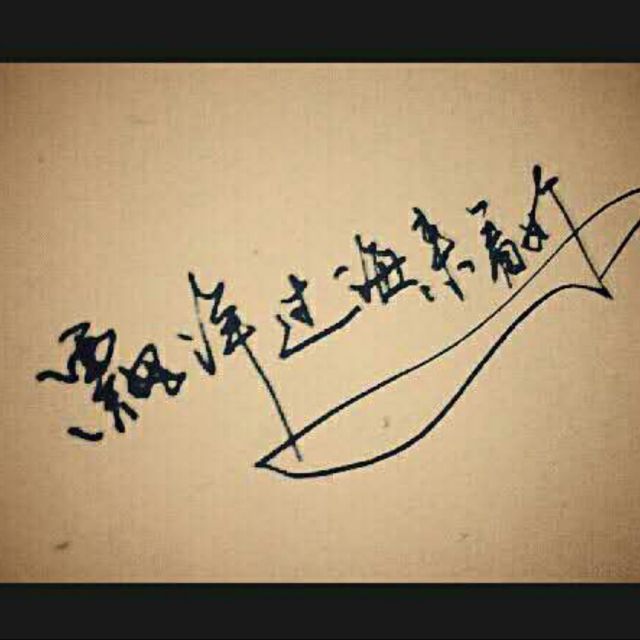 飘洋过海来看你